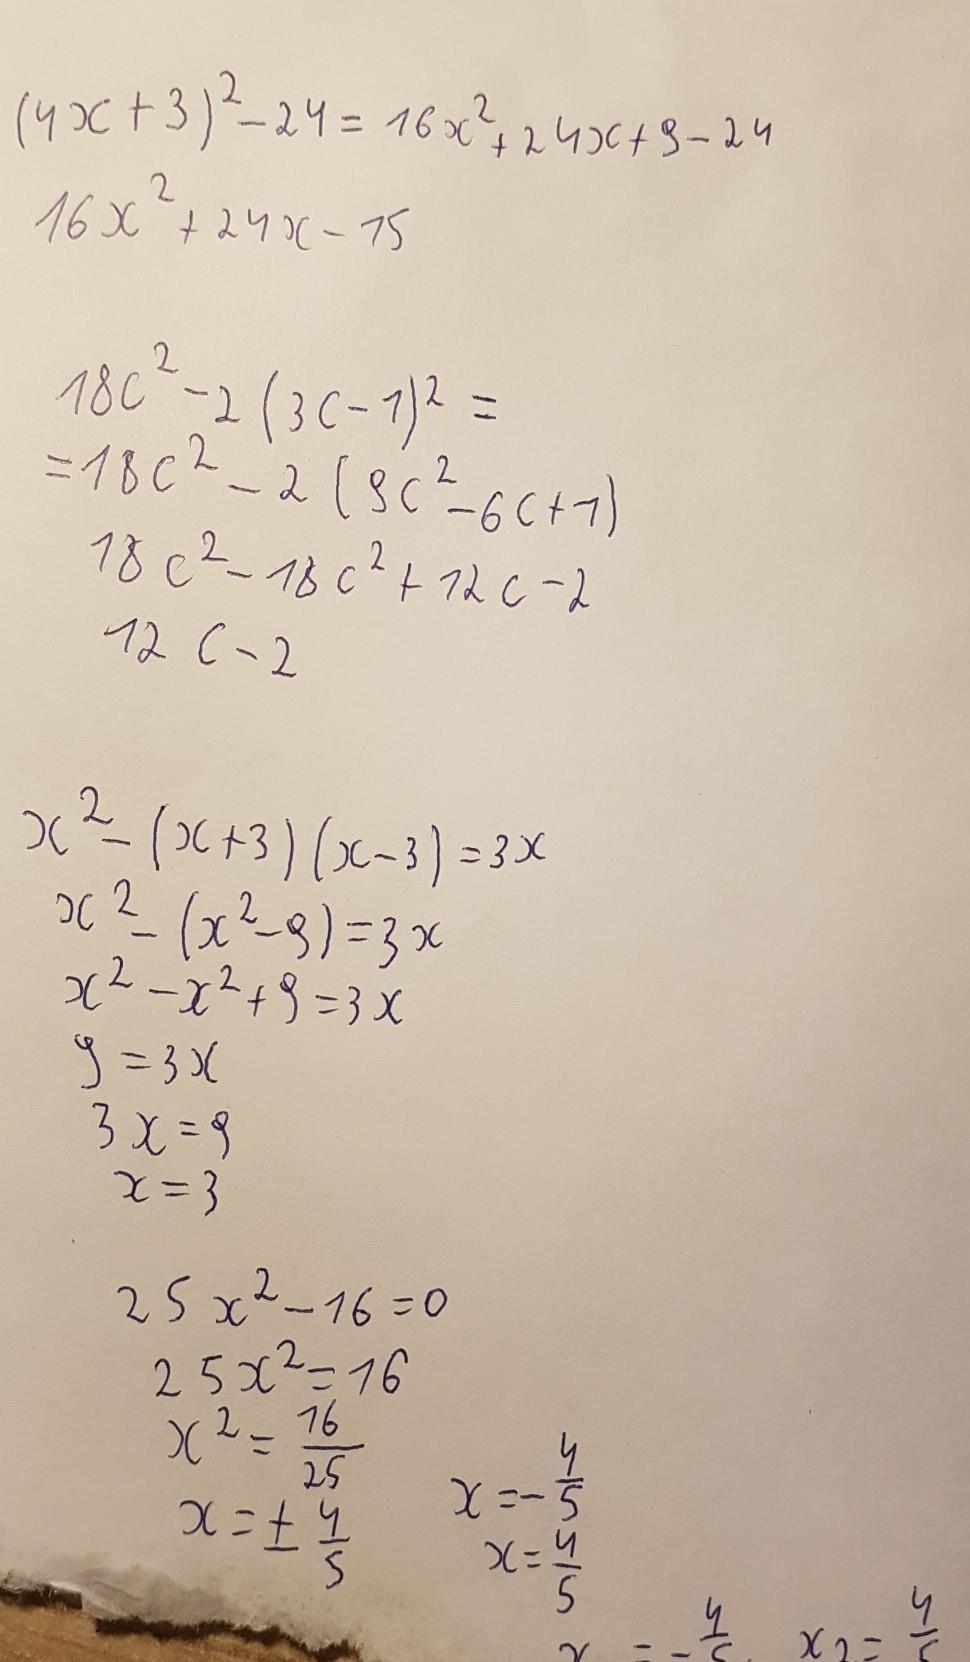 (4x+3)² - 24 = 16x² + 24x + 9 - 24
16x² + 24x - 15
18c² - 2(3c-1)² =
= 18c² - 2(9c² - 6c + 1)
18c² - 18c² + 12c - 2
12c - 2
x² - (x+3)(x-3) = 3x
x² - (x² - 9) = 3x
x² - x² + 9 = 3x
9 = 3x
3x = 9
x = 3
25x² - 16 = 0
25x² = 16
x² = 16/25
x = ± 4/5
x = - 4/5
x = 4/5
x = - 4/5, x₂ = 4/5